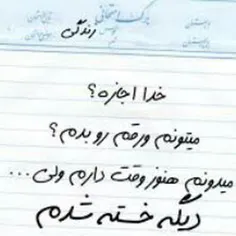 برگ امتحانی
زندگی
خدا اجازه؟
میتونم ورقم رو بدم؟
میدونم هنوز وقت دارم ولی...
دیگه خسته شدم